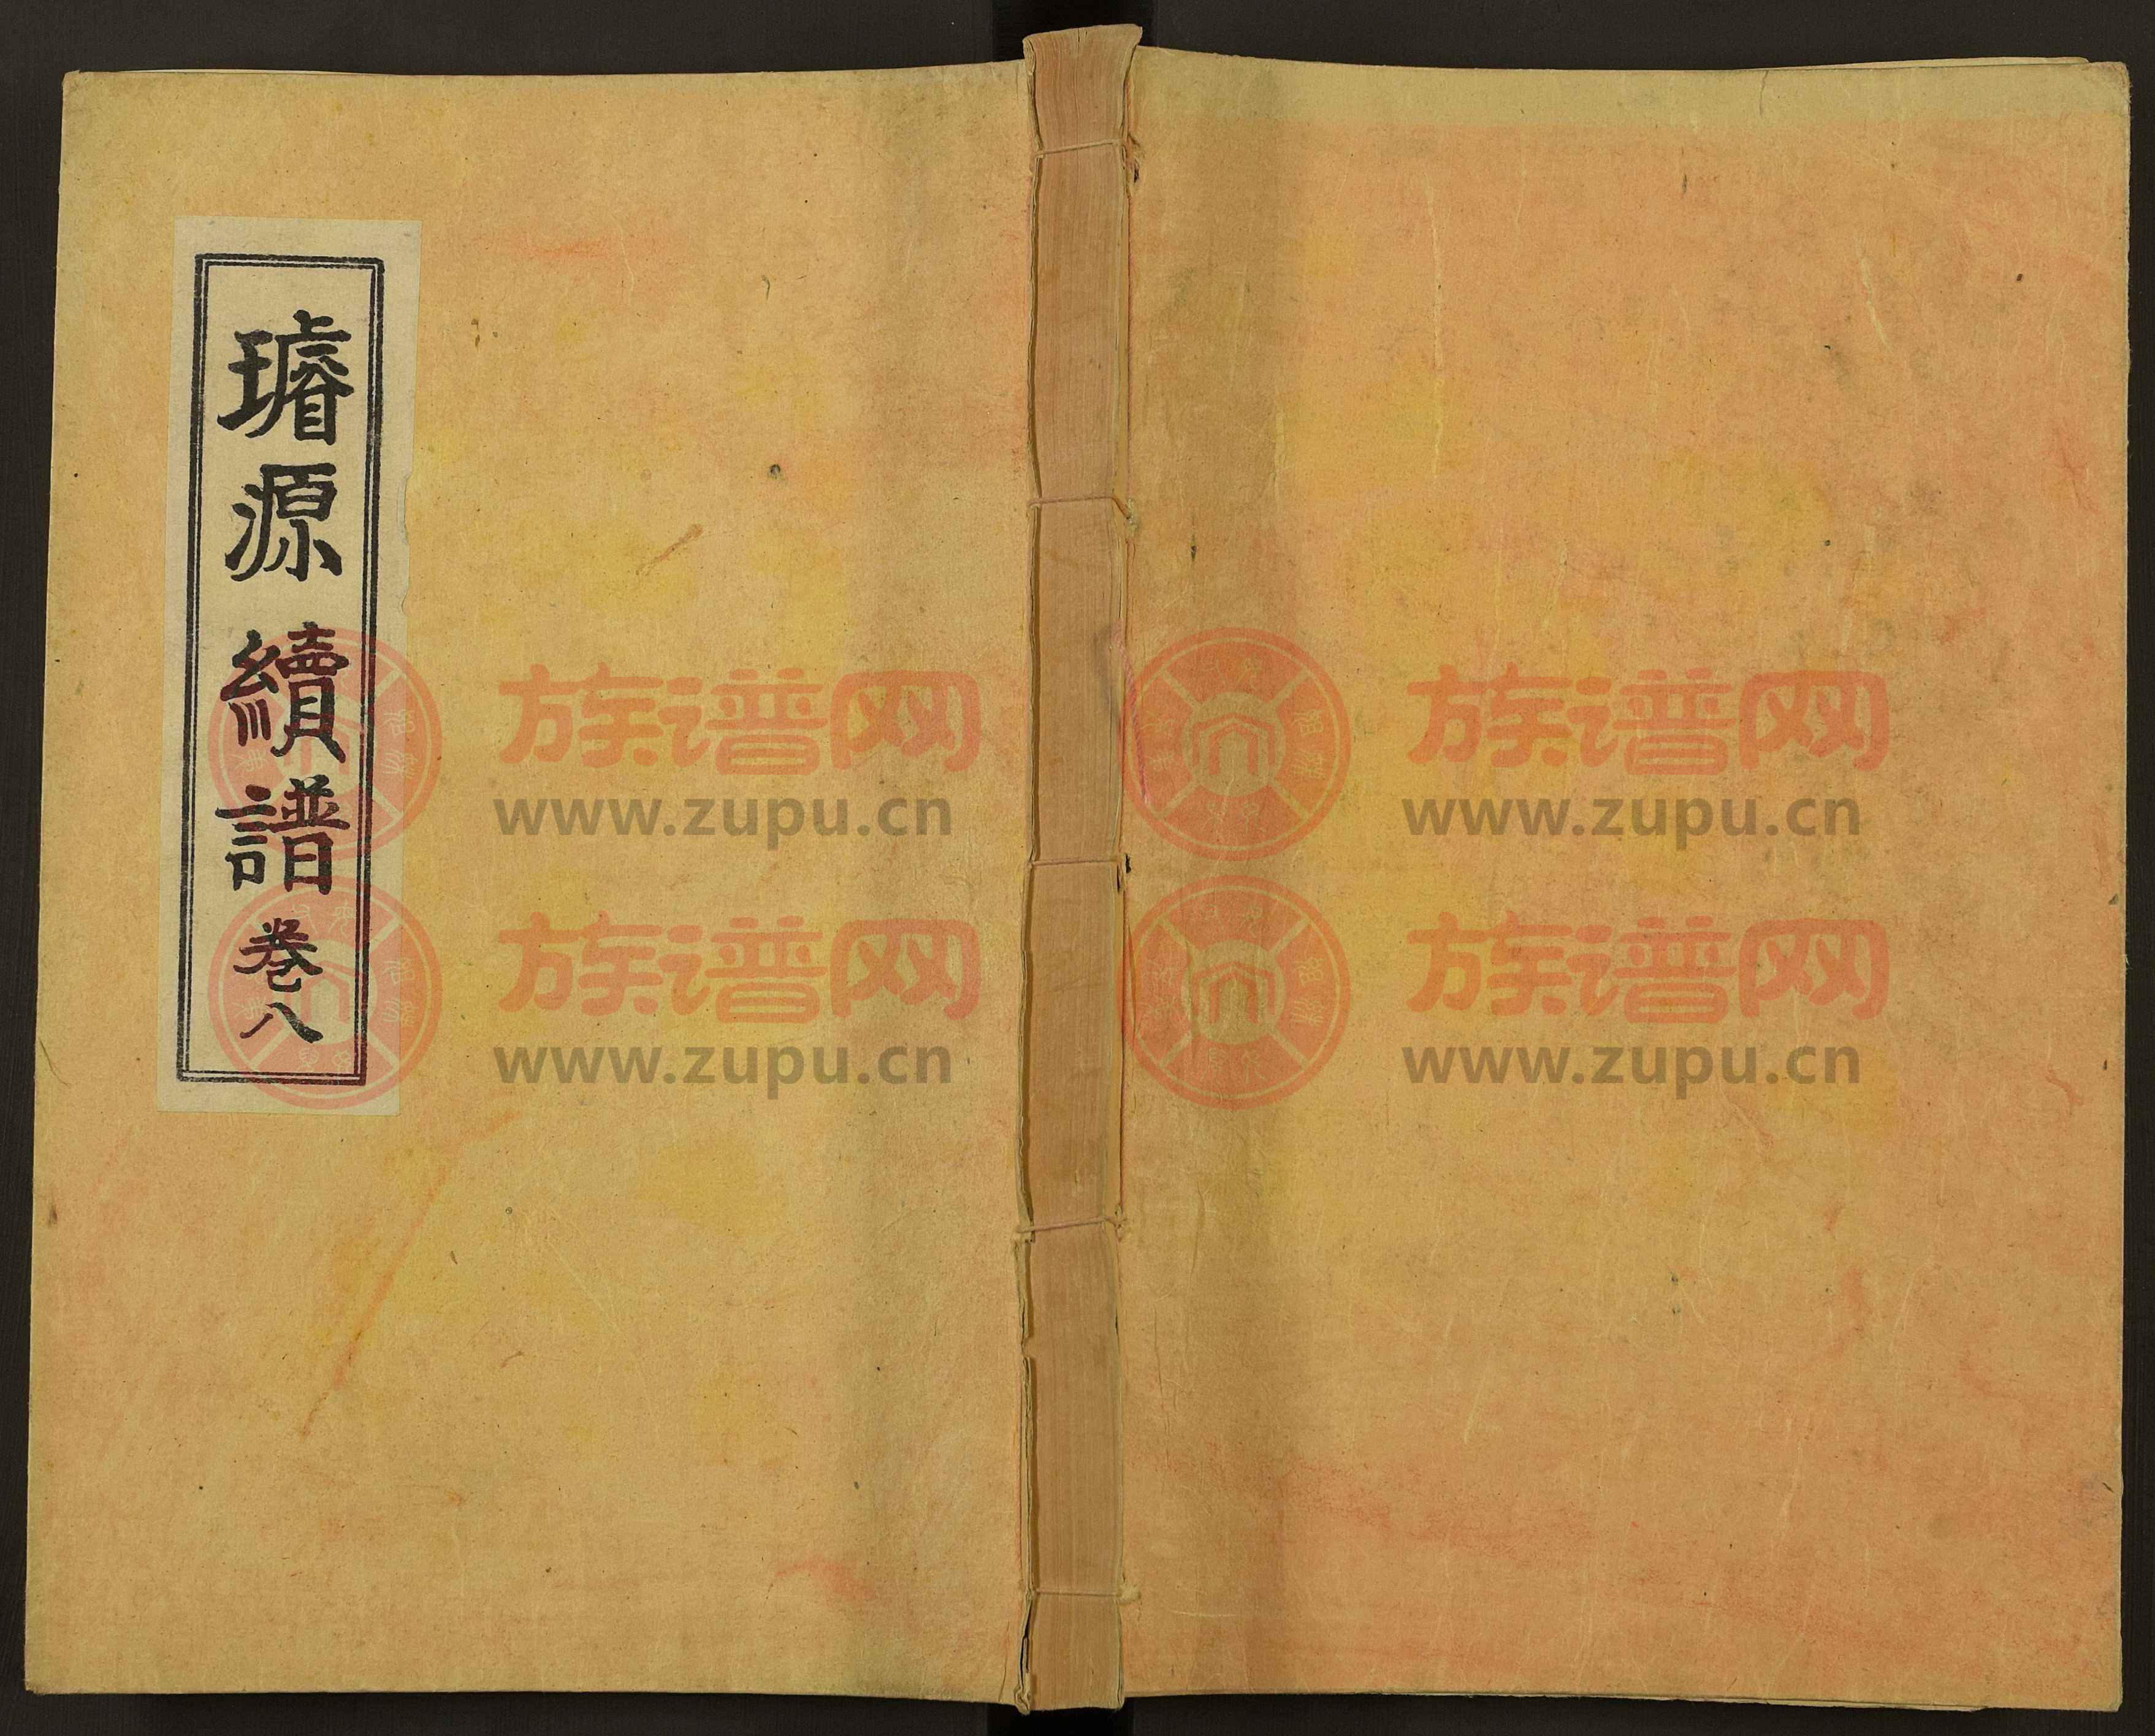 璿源續譜 卷八
族谱网
www.zupu.cn
族谱网
www.zupu.cn
族谱网
www.zupu.cn
族谱网
www.zupu.cn